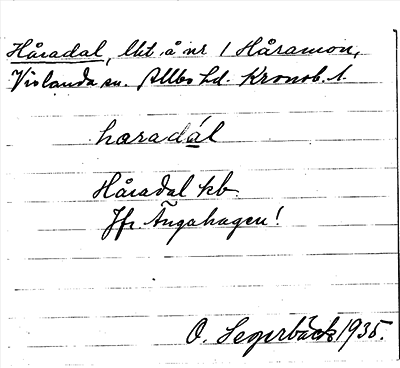 Håradal, lht å nr 1 Håramon,
Vislanda sn. Allbo hd. Kronob. l.
haradál
Håradal kb
Jfr Ängahagen!
O. Segerbäck 1935.